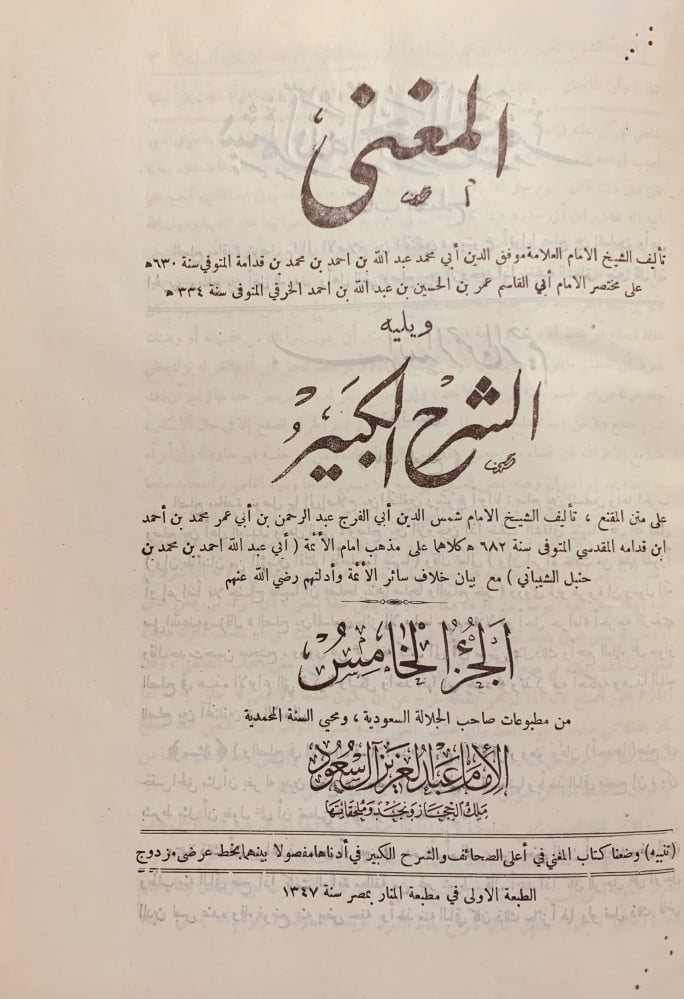 المغنى
تأليف الشيخ الامام العلامة موفق الدين أبي محمد عبد الله بن احمد بن محمد بن قدامة المتوفي سنة ٦٣٠ هـ
على مختصر الامام أبي القاسم عمر بن الحسين بن عبد الله بن احمد الخرقي المتوفى سنة ٣٣٤ هـ
ويليه
الشرح الكبير
على متن المقنع ، تأليف الشيخ الامام شمس الدين أبي الفرج عبد الرحمن بن أبي عمر محمد بن أحمد
ابن قدامه المقدسي المتوفى سنة ٦٨٢ هـ كلاهما على مذهب امام الأئمة ( أبي عبد الله احمد بن محمد بن
حنبل الشيباني ) مع بيان خلاف سائر الأئمة وأدلتهم رضي الله عنهم
الجُزُءُ الخَامِسُ
من مطبوعات صاحب الجلالة السعودية ، ومحيي السنة المحمدية
الإمام عبد العزيز آل سعود
ملك الحجاز ونجد وملحقاتها
(تنبيه) وضعنا كتاب المغني في أعلى الصحائف والشرح الكبير في أدناها مفصولا بينهما بخط عرضي مزدوج
الطبعة الاولى في مطبعة المنار بمصر سنة ١٣٤٧